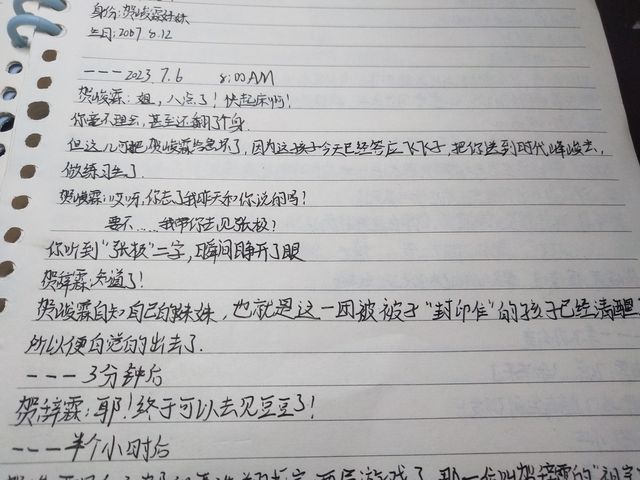 身份:贺峻霖妹妹
生日:2007.8.12
---2023.7.6 8:00AM
贺峻霖:姐,八点了!快起床啊!
你毫不理会,甚至还翻了个身.
但这儿可把贺峻霖给急坏了,因为这孩子今天已经答应飞飞子,把你送到时代峰峻去,
做练习生了.
贺峻霖:哎呀,你忘了我昨天和你说的吗?
要不……我带你去见张极?
你听到“张极”二字,瞬间睁开了眼
贺辞霖:知道了!
贺峻霖自知自己的妹妹,也就是这一团被被子“封印住”的孩子已经清醒,
所以便自觉的出去了.
---3分钟后
贺辞霖:耶!终于可以去见豆豆了!
---半个小时后